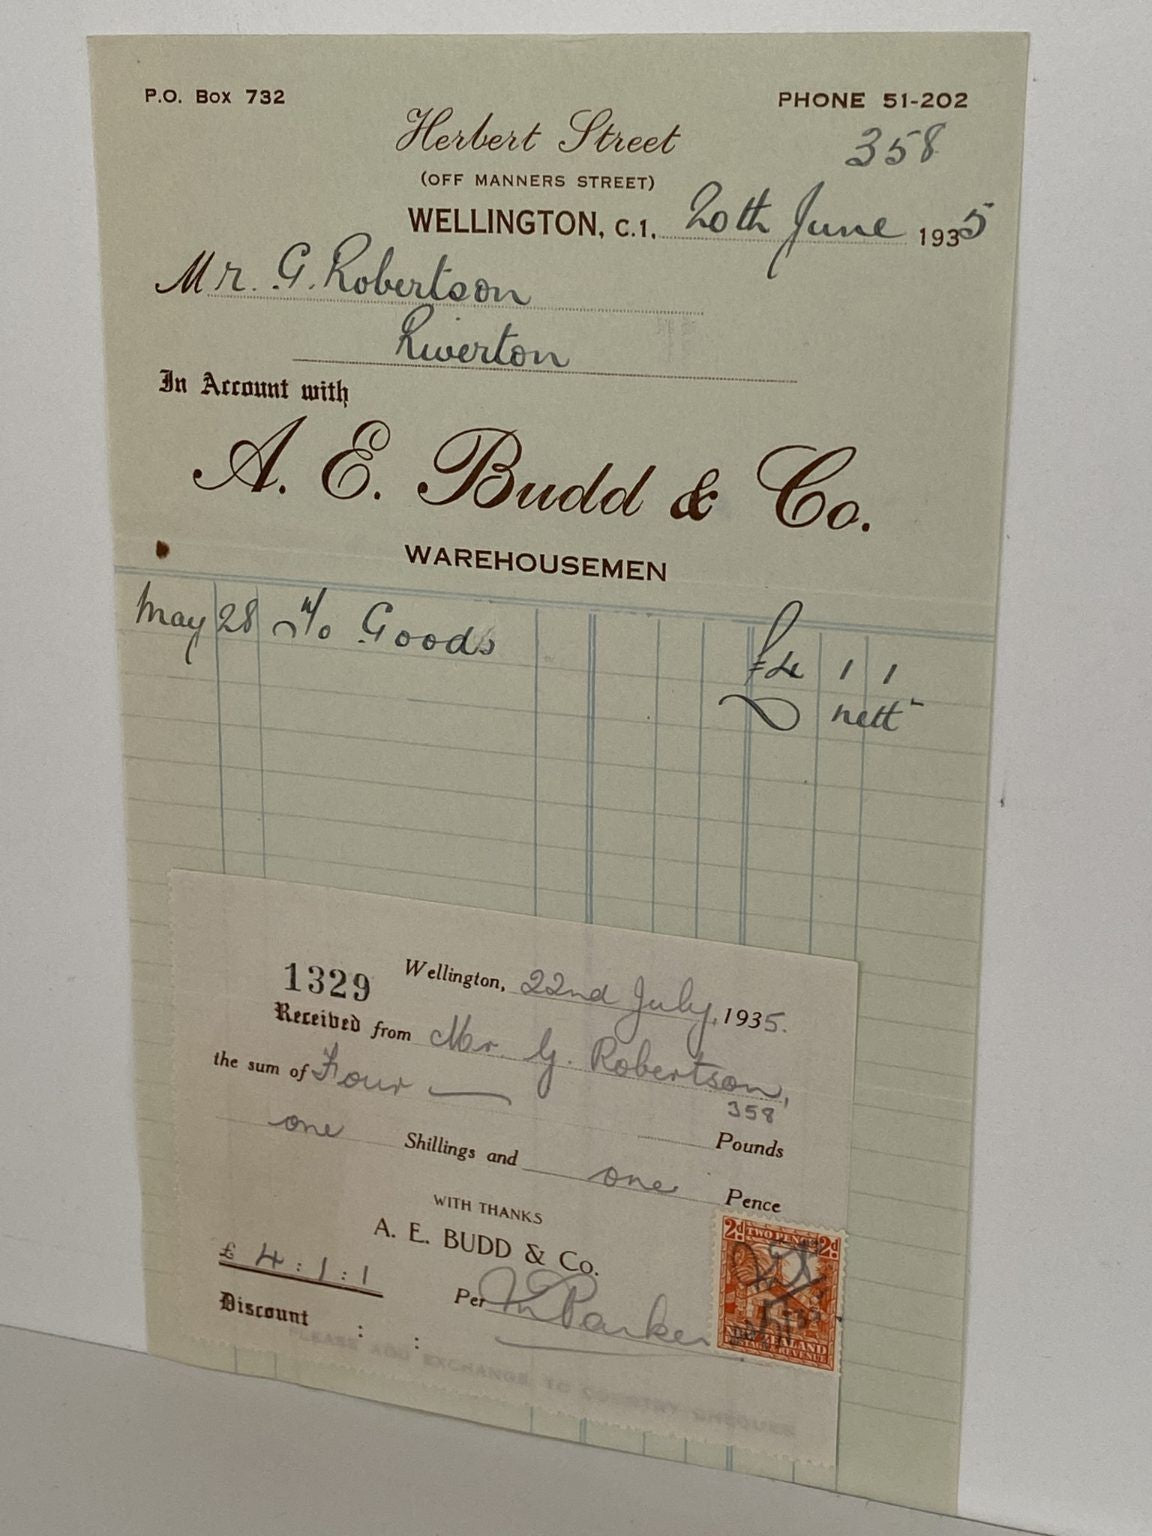 P.O. Box 732
PHONE 51-202
Herbert Street
358
(OFF MANNERS STREET)
WELLINGTON, C.1. 20th June 1935
Mr. G. Robertson
Riverton
In Account with
A. E. Budd & Co.
WAREHOUSEMEN
May 28 Goods £4 1 1
nett
1329 Wellington, 22nd July, 1935.
Received from Mr. G. Robertson,
358
the sum of Four Pounds
one Shillings and one Pence
WITH THANKS
A. E. BUDD & Co.
£ 4 : 1 : 1
Per Parker
Discount : :
PLEASE ADD EXCHANGE TO COUNTRY CHEQUES
2d TWO PENCE 2d
NEW ZEALAND
POSTAGE & REVENUE